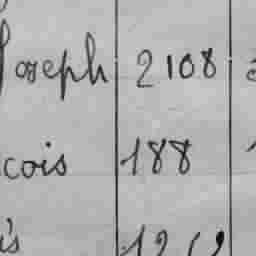 Joseph 2108
cois 188
is